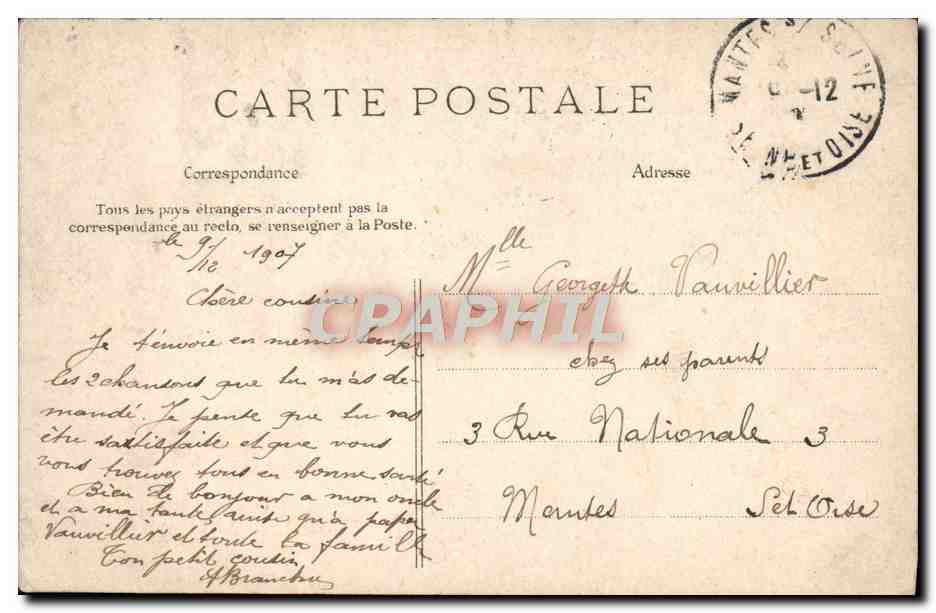 CARTE POSTALE
MANTES S/ SEINE
9 -12
SEINE ET OISE
Correspondance
Adresse
Tous les pays étrangers n'acceptent pas la
correspondance au recto, se renseigner à la Poste.
le 9/12 1907
Chère cousine
Je t'envoie en même temps
les 2 chansons que tu m'as de-
mandé. Je pense que tu vas
être satisfaite et que vous
vous trouvez tous en bonne santé
Bien le bonjour a mon oncle
et a ma tante ainsi qu'a papa
Vauvillier et toute la famille
Ton petit cousin
Mlle Georgette Vauvillier
chez ses parents
3 Rue Nationale 3
Mantes S et Oise
CPAPHIL